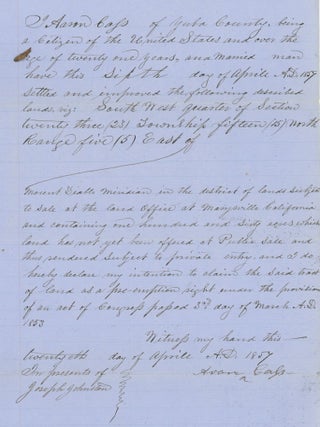 I Aaron Cass of Yuba County, being
a Citizen of the United States and over the
age of twenty one years, and Married man
have this Sixth day of Aprile A.D. 1857
Settled and improved the following described
lands, viz: South West quarter of Section
twenty three (23) Township fifteen (15) North
Range five (5) East of
Mount Diablo Meridian in the district of lands subject
to sale at the land Office at Marysville California
and containing one hundred and Sixty acres which
land has not yet been offered at Public Sale and
thus rendered Subject to private entry, and I do
hereby declare my intention to claim the Said tract
of land as a Pre-emption right under the provisions
of an act of Congress passed 3rd day of March A.D.
1853
Witness my hand this
day of Aprile A.D. 1857
In presents of Aaron Cass
Joseph Johnston